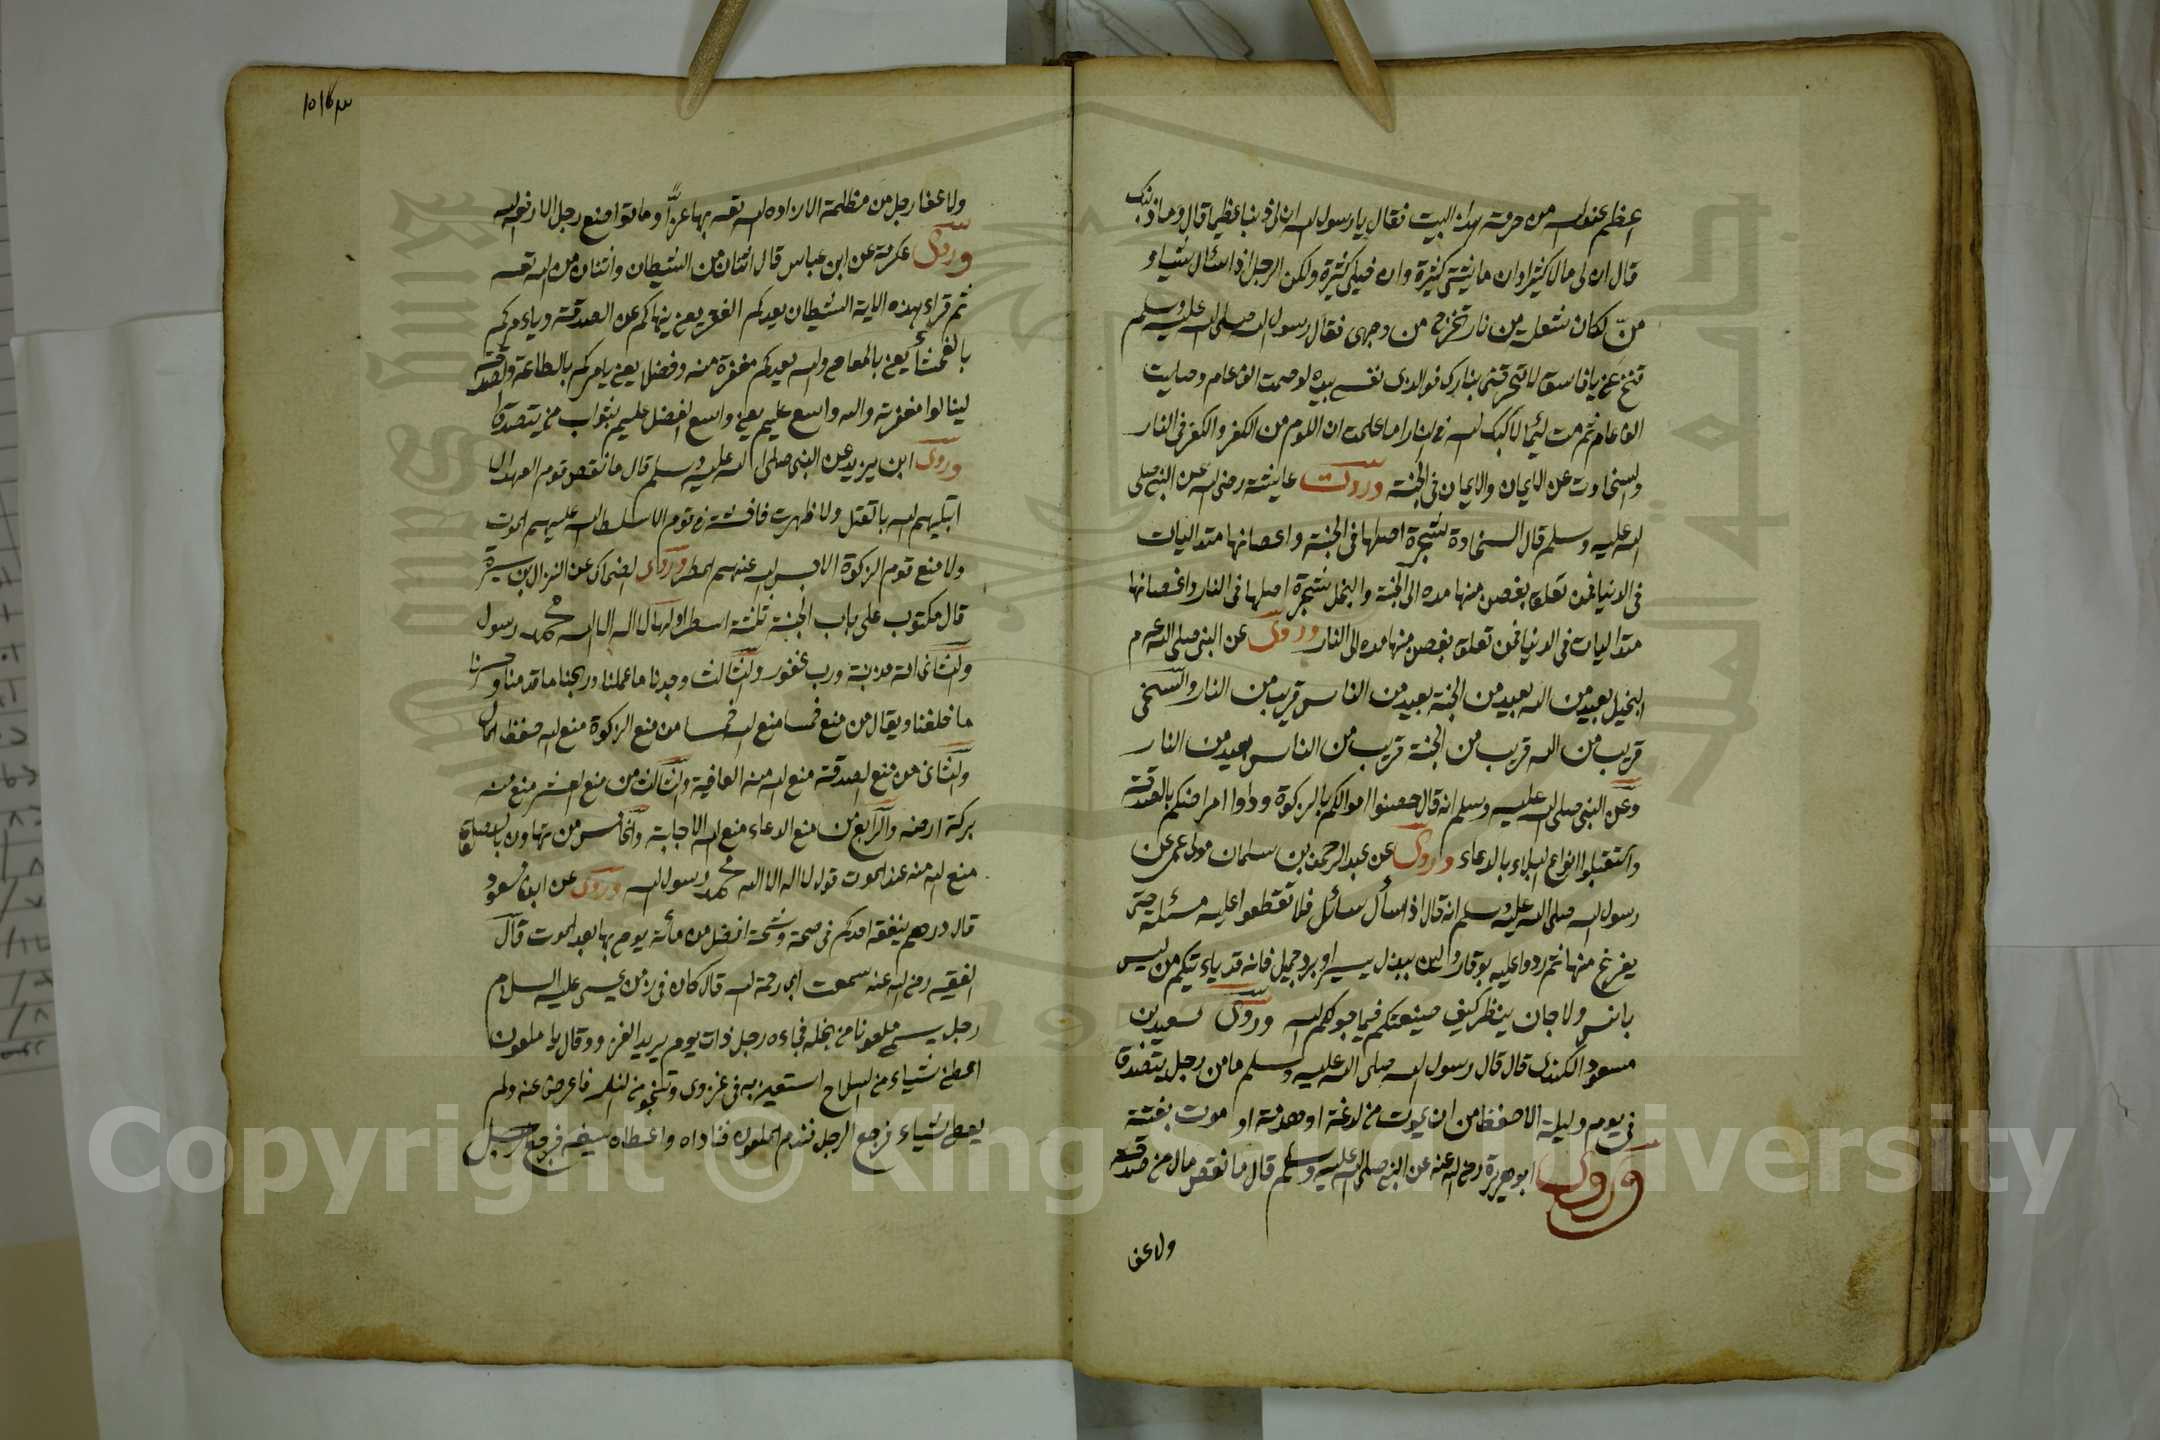 اعظم عند الله من حرمة هذا البيت فقال يا رسول الله ان لى ذنبا عظيما قال وما ذنبك
قال ان لى مالا كثيرا وان ماشيتى كثيرة وان خيلى كثيرة ولكن الرجل اذا سئال شيئا و
منّ لكان شعلة من نار تخرج من وجهى فقال رسول الله صلى الله عليه وسلم
تنح عنى يا فاسق لا تحرقنى بنارك فوالذى نفسى بيده لو صمت الف عام وصليت
الف عام ثم مت لئيما لاكبك الله فى النار اما علمت ان اللوم من الكفر والكفر فى النار
والسخاوة عن الايمان والايمان فى الجنة وروت عايشة رضى الله عن النبى صلى
الله عليه وسلم قال السخاوة شجرة اصلها فى الجنة واغصانها متداليات
فى الدنيا فمن تعلق بغصن منها مده الى الجنة والبخل شجرة اصلها فى النار واغصانها
متداليات فى الدنيا فمن تعلق بغصن منها مده الى النار وروى عن النبى صلى الله عم
البخيل بعيد من الله بعيد من الجنة بعيد من الناس قريب من النار والسخى
قريب من الله قريب من الجنة قريب من الناس بعيد من النار
وعن النبى صلى الله عليه وسلم انه قال حصنوا اموالكم بالزكوة وداوا امراضكم بالصدقة
واستقبلوا انواع البلاء بالدعاء وروى عن عبد الرحمن بن سلمان مولى عمى عن
رسول الله صلى الله عليه وسلم انه قال اذا سأل سائل فلا تقطعوا عليه مسئلة حتى
يفرغ منها ثم ردوا عليه بوقار ولين ببذل يسير او برد جميل فانه قد ياءتيكم من ليس
بانس ولا جان ينظر كيف صنيعتكم فيما خولكم الله وروى سعيد بن
مسعود الكندى قال قال رسول الله صلى الله عليه وسلم ما من رجل يتصدق
فى يوم وليلة الا حفظ من ان يموت من لدغة او هدمة او موت بغتة
وروى ابو هريرة رضى الله عنه عن النبى صلى الله عليه وسلم قال ما نقص مال من صدقة
ولا عفا
ولا عفا رجل من مظلمة الا زاده الله تعه بها عزا وما تواضع رجل الا رفعه الله
وروى عكرمة عن ابن عباس قال اثنان من الشيطان واثنان من الله تعه
ثم قراء بهذه الاية الشيطان يعدكم الفقر يعنى ينهاكم عن الصدقة وياءمركم
بالفحشاء يعنى بالمعاصى والله يعدكم مغفرة منه وفضلا يعنى يامركم بالطاعة والصدقة
لينالوا مغفرته والله واسع عليم يعنى واسع الفضل عليم بثواب من يتصدق
وروى ابن يزيد عن النبى صلى الله عليه وسلم قال ما نقص قوم العهد الا
ابتليهم الله بالقتل ولا ظهرت فاحشة فى قوم الا سلط الله عليهم الموت
ولا منع قوم الزكوة الا حبس الله عنهم المطر وروى الضحاك عن النزال بن سبرة
قال مكتوب على باب الجنة ثلثة اسطر اولها لا اله الا الله محمد رسول
والثانى امة مذنبة ورب غفور والثالث وجدنا ما عملنا وربحنا ما قدمنا وخسرنا
ما خلفنا ويقال من منع خمسا منع الله خمسا من منع الزكوة منع الله حفظ المال
والثانى من منع الصدقة منع الله منه العافية والثالث من منع العشر منع منه
بركة ارضه والرابع من منع الدعاء منع الله الاجابة والخامس من تهاون بالصلوة
منع الله منه عند الموت قول لا اله الا الله محمد رسول الله وروى عن ابن مسعود
قال درهم ينفقه احدكم فى صحة وشحة افضل من مأئة يوصى بها بعد الموت قال
الفقيه رضى الله عنه سمعت ابى رحمة الله قال كان فى زمن عيسى عليه السلام
رجل يسمى ملعونا من بخله فجاءه رجل ذات يوم يريد الغزو وقال يا ملعون
اعطنى شياء من السلاح استعين به فى غزوى وتنجو من النار فاعرض عنه ولم
يعطه شياء فرجع الرجل فندم الملعون فناداه واعطاه سيفه فرجع الرجل
Copyright © King Saud University